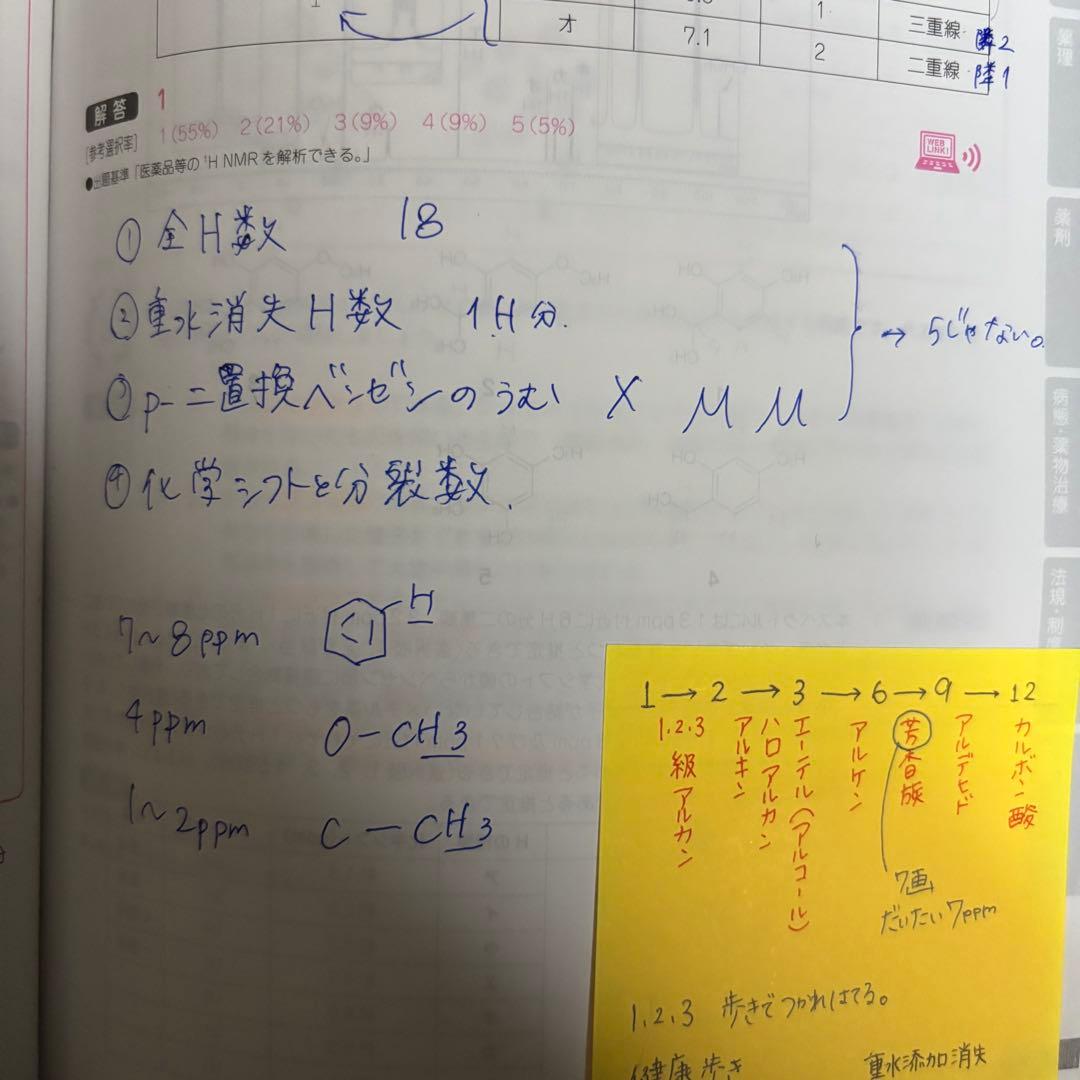 オ 7.1 1 三重線 隣2
2 二重線 隣1
解答 1
[参考選択率] 1(55%) 2(21%) 3(9%) 4(9%) 5(5%)
●出題基準「医薬品等の ¹H NMR を解析できる。」
WEB LINK!
① 全H数 18
② 重水消失H数 1H分.
③ p-二置換ベンゼンのうむ X M M
→ 5じゃない。
④ 化学シフトと分裂数.
7~8ppm H
4ppm O-CH3
1~2ppm C-CH3
1→2→3→6→9→12
1.2.3級アルカン
アルキン
ハロアルカン
エーテル(アルコール)
アルケン
芳香族
アルデヒド
カルボン酸
7画
だいたい7ppm
1.2.3 歩きでつかれはてる。
健康歩き 重水添加消失
薬理
薬剤
病態・薬物治療
法規・制度